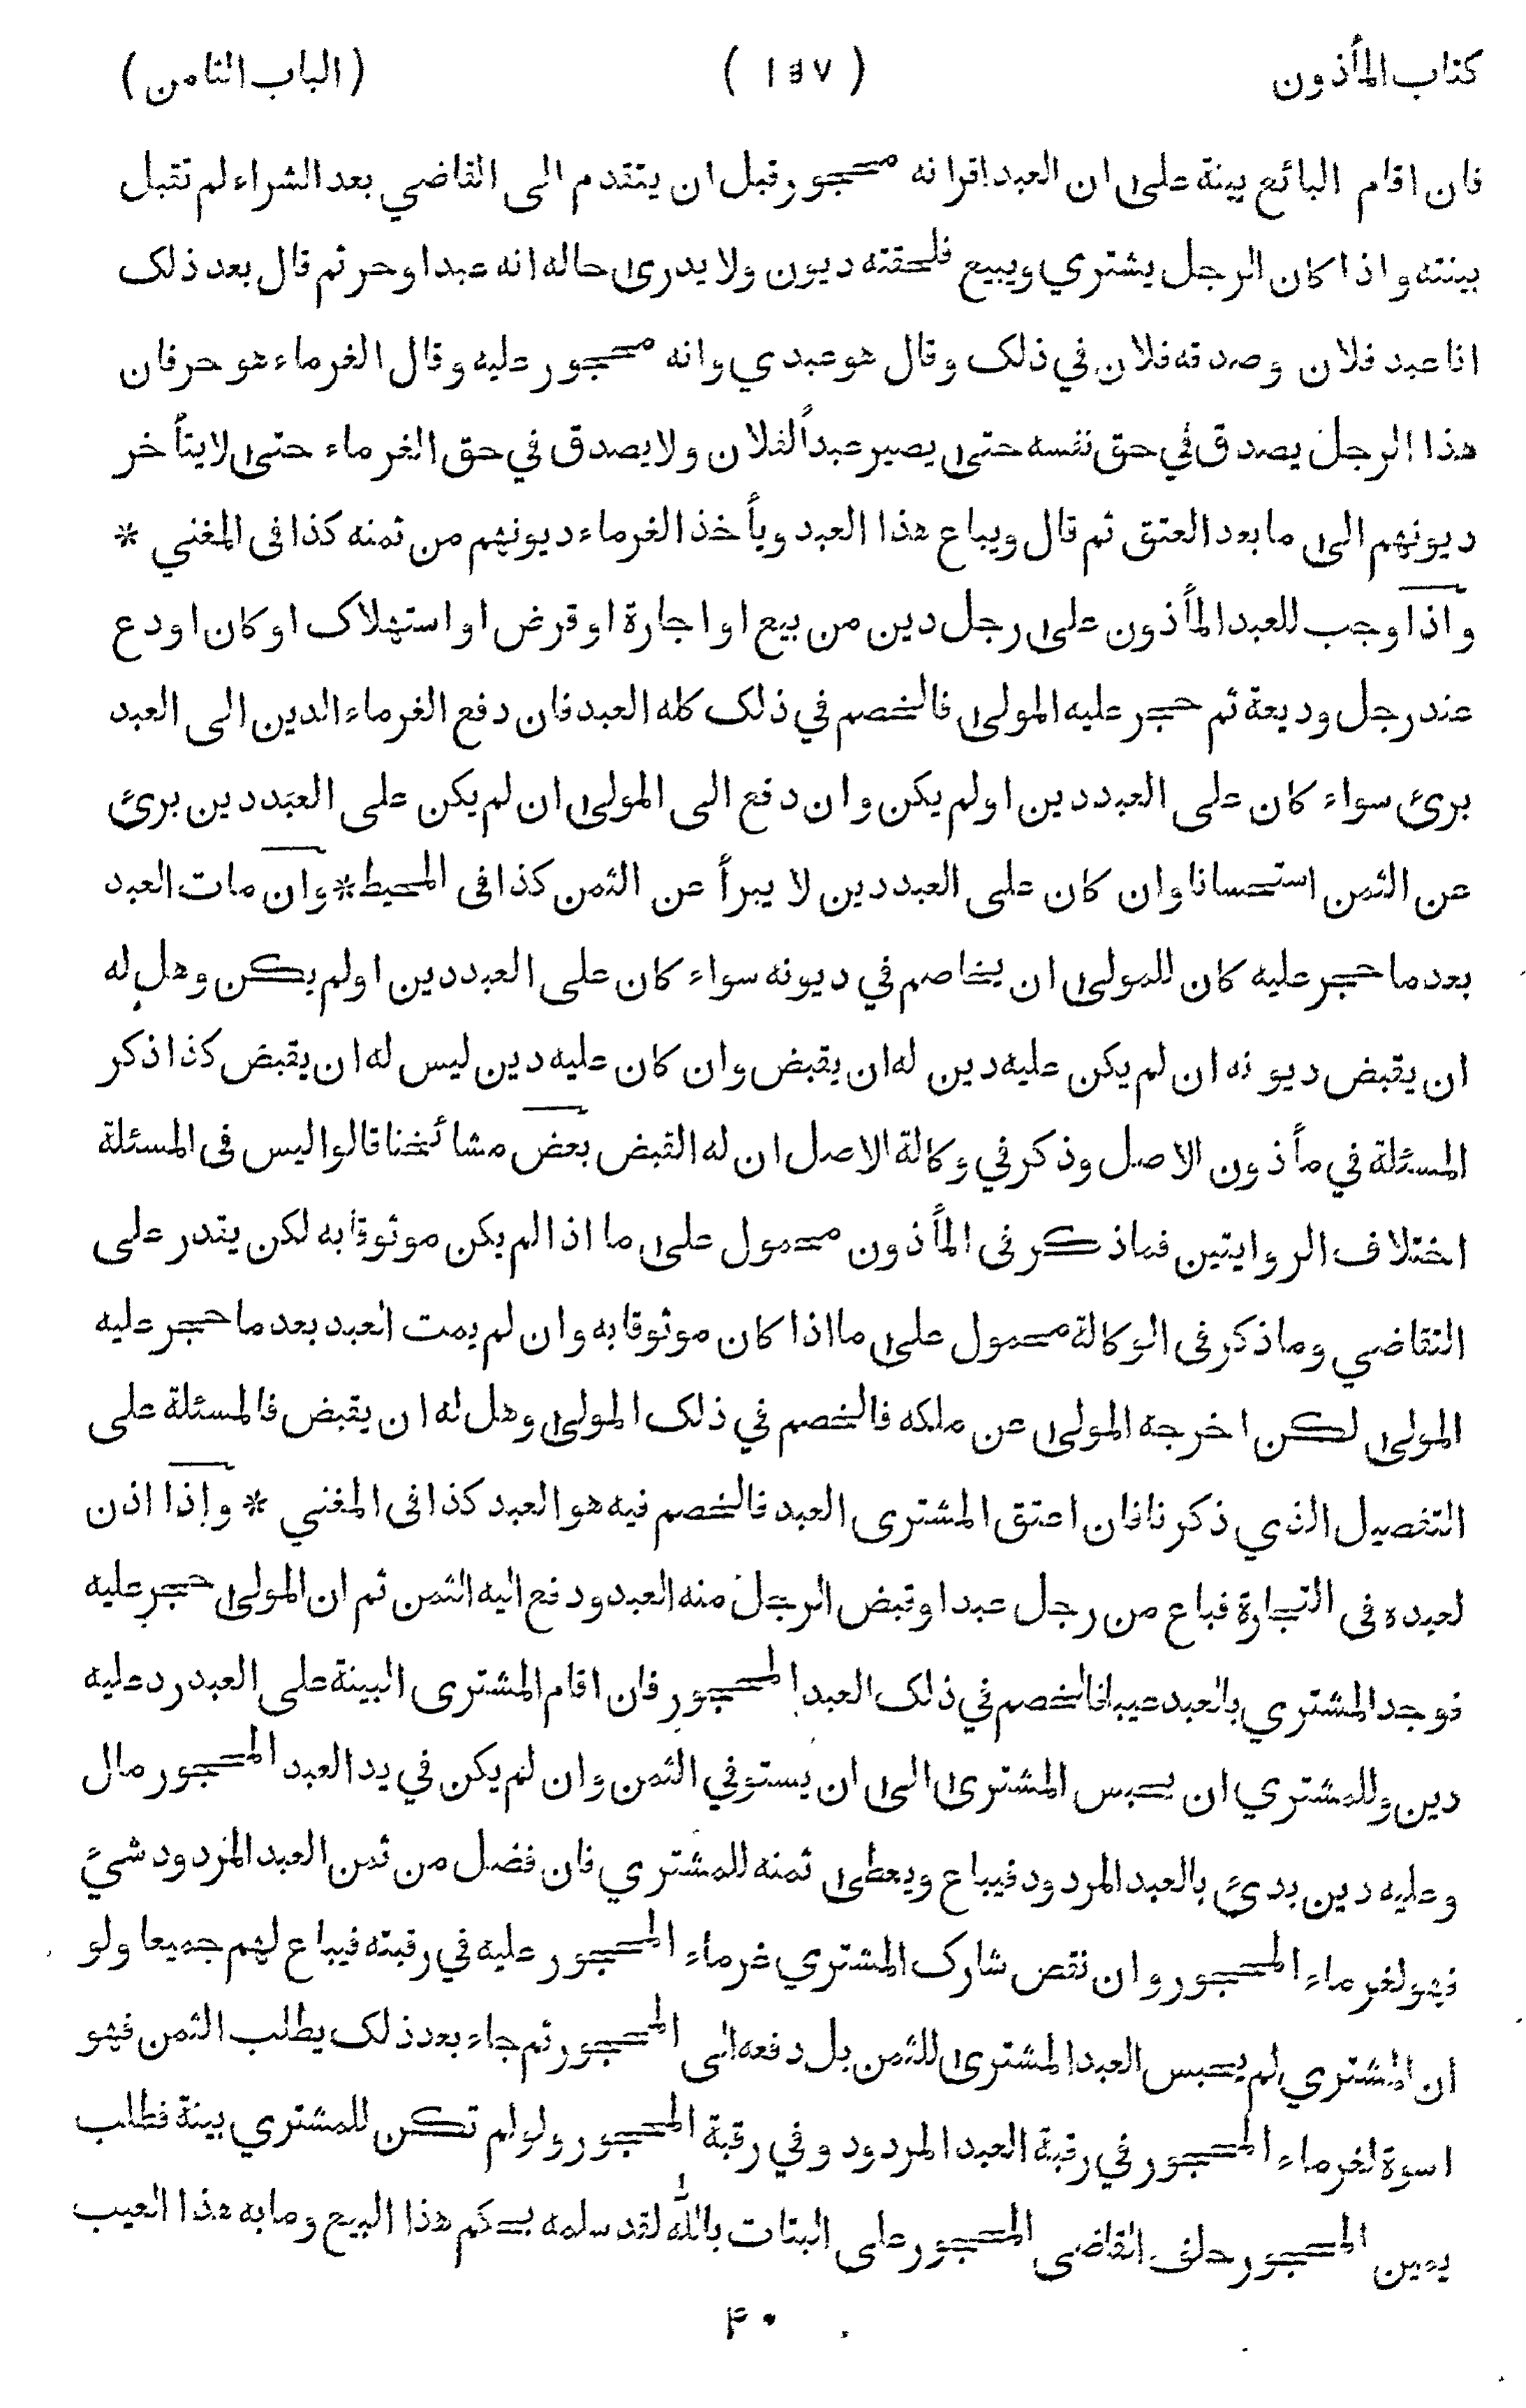 كتاب المأذون ( ١٥٧ ) (الباب الثامن)
فان اقام البائع بينة على ان العبد اقر انه محجور قبل ان يتقدم الى القاضي بعد الشراء لم تقبل
بينته و اذا كان الرجل يشتري ويبيع فلحقته ديون ولا يدرى حاله انه عبد او حر ثم قال بعد ذلك
انا عبد فلان وصدقه فلان في ذلك وقال هو عبدي وانه محجور عليه وقال الغرماء هو حر فان
هذا الرجل يصدق في حق نفسه حتى يصير عبداً لفلان ولا يصدق في حق الغرماء حتى لا يتأخر
ديونهم الى ما بعد العتق ثم قال ويباع هذا العبد ويأخذ الغرماء ديونهم من ثمنه كذا فى المغني *
واذا وجب للعبد المأذون على رجل دين من بيع او اجارة او قرض او استهلاك او كان اودع
عند رجل وديعة ثم حجر عليه المولى فالخصم في ذلك كله العبد فان دفع الغرماء الدين الى العبد
برئ سواء كان على العبد دين اولم يكن وان دفع الى المولى ان لم يكن على العبد دين برئ
عن الثمن استحسانا وان كان على العبد دين لا يبرأ عن الثمن كذا فى المحيط * وان مات العبد
بعد ما حجر عليه كان للمولى ان يخاصم في ديونه سواء كان على العبد دين اولم يكن وهل له
ان يقبض ديونه ان لم يكن عليه دين له ان يقبض وان كان عليه دين ليس له ان يقبض كذا ذكر
المسئلة في مأذون الاصل وذكر في وكالة الاصل ان له القبض بعض مشائخنا قالوا ليس فى المسئلة
اختلاف الروايتين فما ذكر فى المأذون محمول على ما اذا لم يكن موثوقا به لكن يقدر على
التقاضي وما ذكر فى الوكالة محمول على ما اذا كان موثوقا به وان لم يمت العبد بعد ما حجر عليه
المولى لكن اخرجه المولى عن ملكه فالخصم في ذلك المولى وهل له ان يقبض فالمسئلة على
التفصيل الذي ذكرنا فان اعتق المشترى العبد فالخصم فيه هو العبد كذا فى المغني * وإذا اذن
لعبده فى التجارة فباع من رجل عبدا وقبض الرجل منه العبد ودفع اليه الثمن ثم ان المولى حجر عليه
فوجد المشتري بالعبد عيبا فالخصم في ذلك العبد المحجور فان اقام المشترى البينة على العبد رد عليه
دين وللمشتري ان يحبس المشترى الى ان يستوفي الثمن وان لم يكن في يد العبد المحجور مال
وعليه دين بدئ بالعبد المردود فيباع ويعطى ثمنه للمشتري فان فضل من ثمن العبد المردود شئ
فهو لغرماء المحجور وان نقص شارك المشتري غرماء المحجور عليه في رقبته فيباع لهم جميعا ولو
ان المشتري لم يحبس العبد المشترى للثمن بل دفعه الى المحجور ثم جاء بعد ذلك يطلب الثمن فهو
اسوة لغرماء المحجور في رقبة العبد المردود وفي رقبة المحجور ولو لم تكن للمشتري بينة فطلب
يمين المحجور حلف القاضى المحجور على البتات بالله لقد سلمه بحكم هذا البيع وما به هذا العيب
۴۰